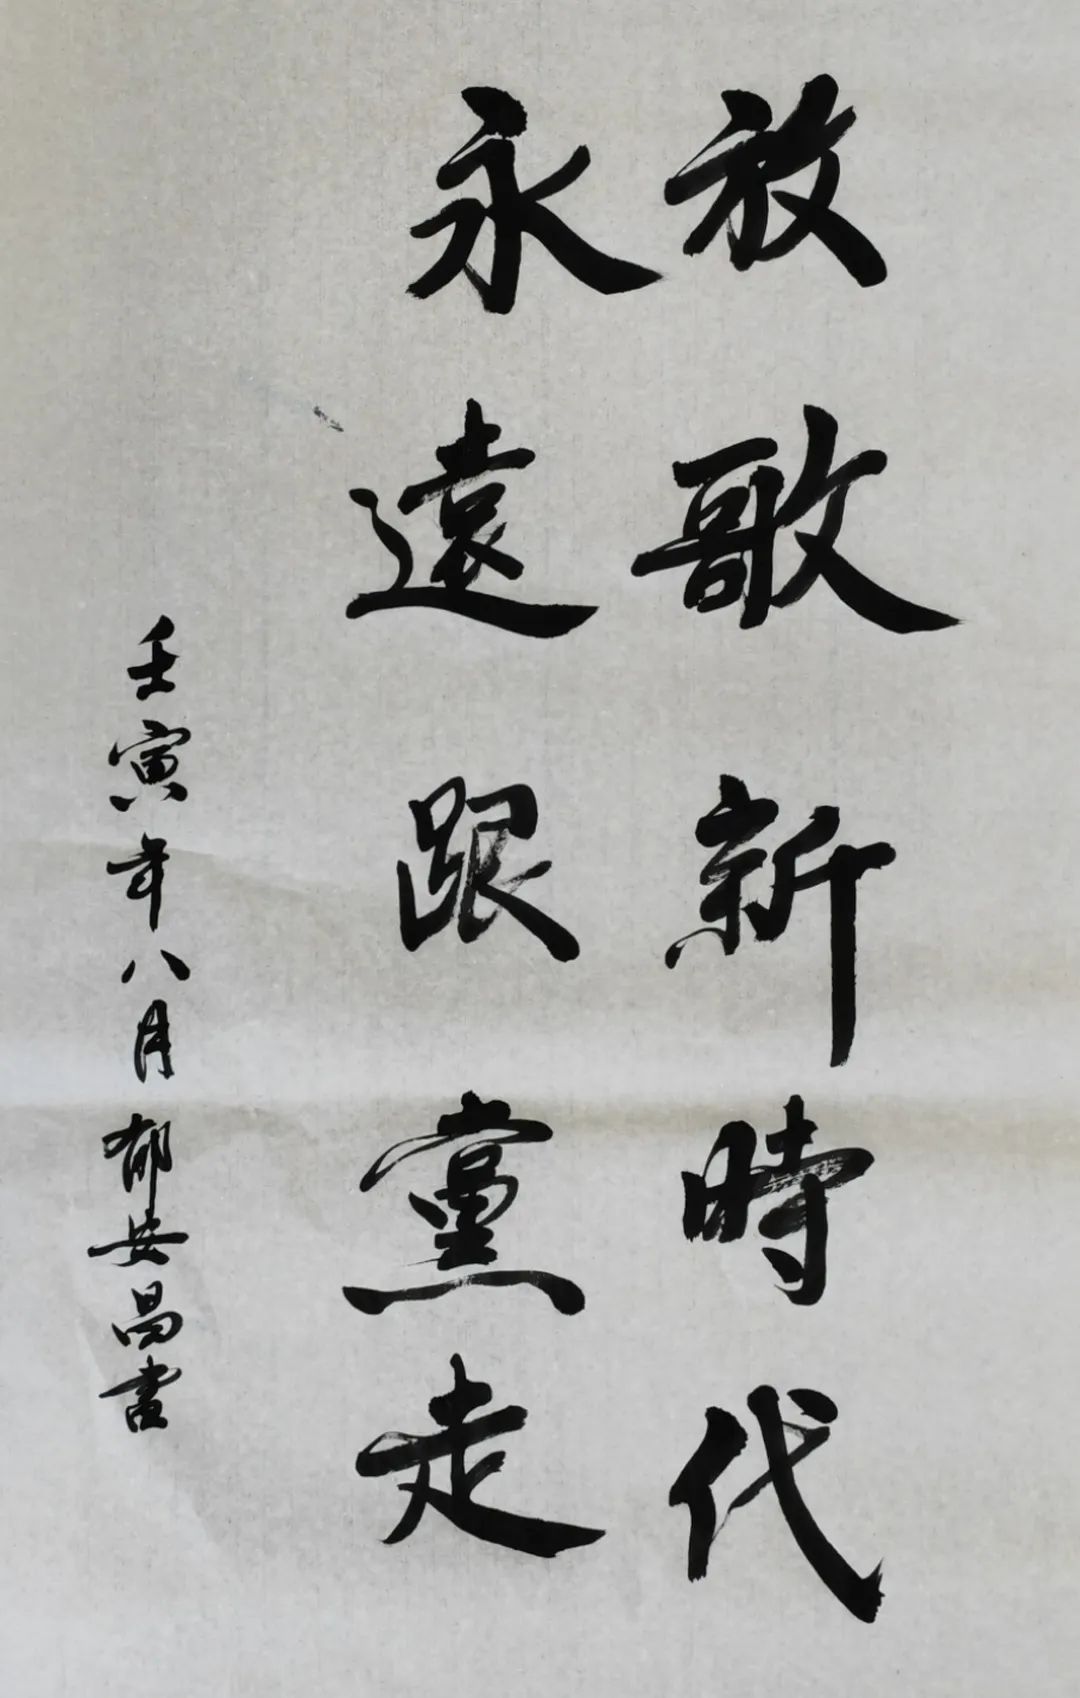 放歌新時代
永遠跟黨走
壬寅年八月郁安昌書